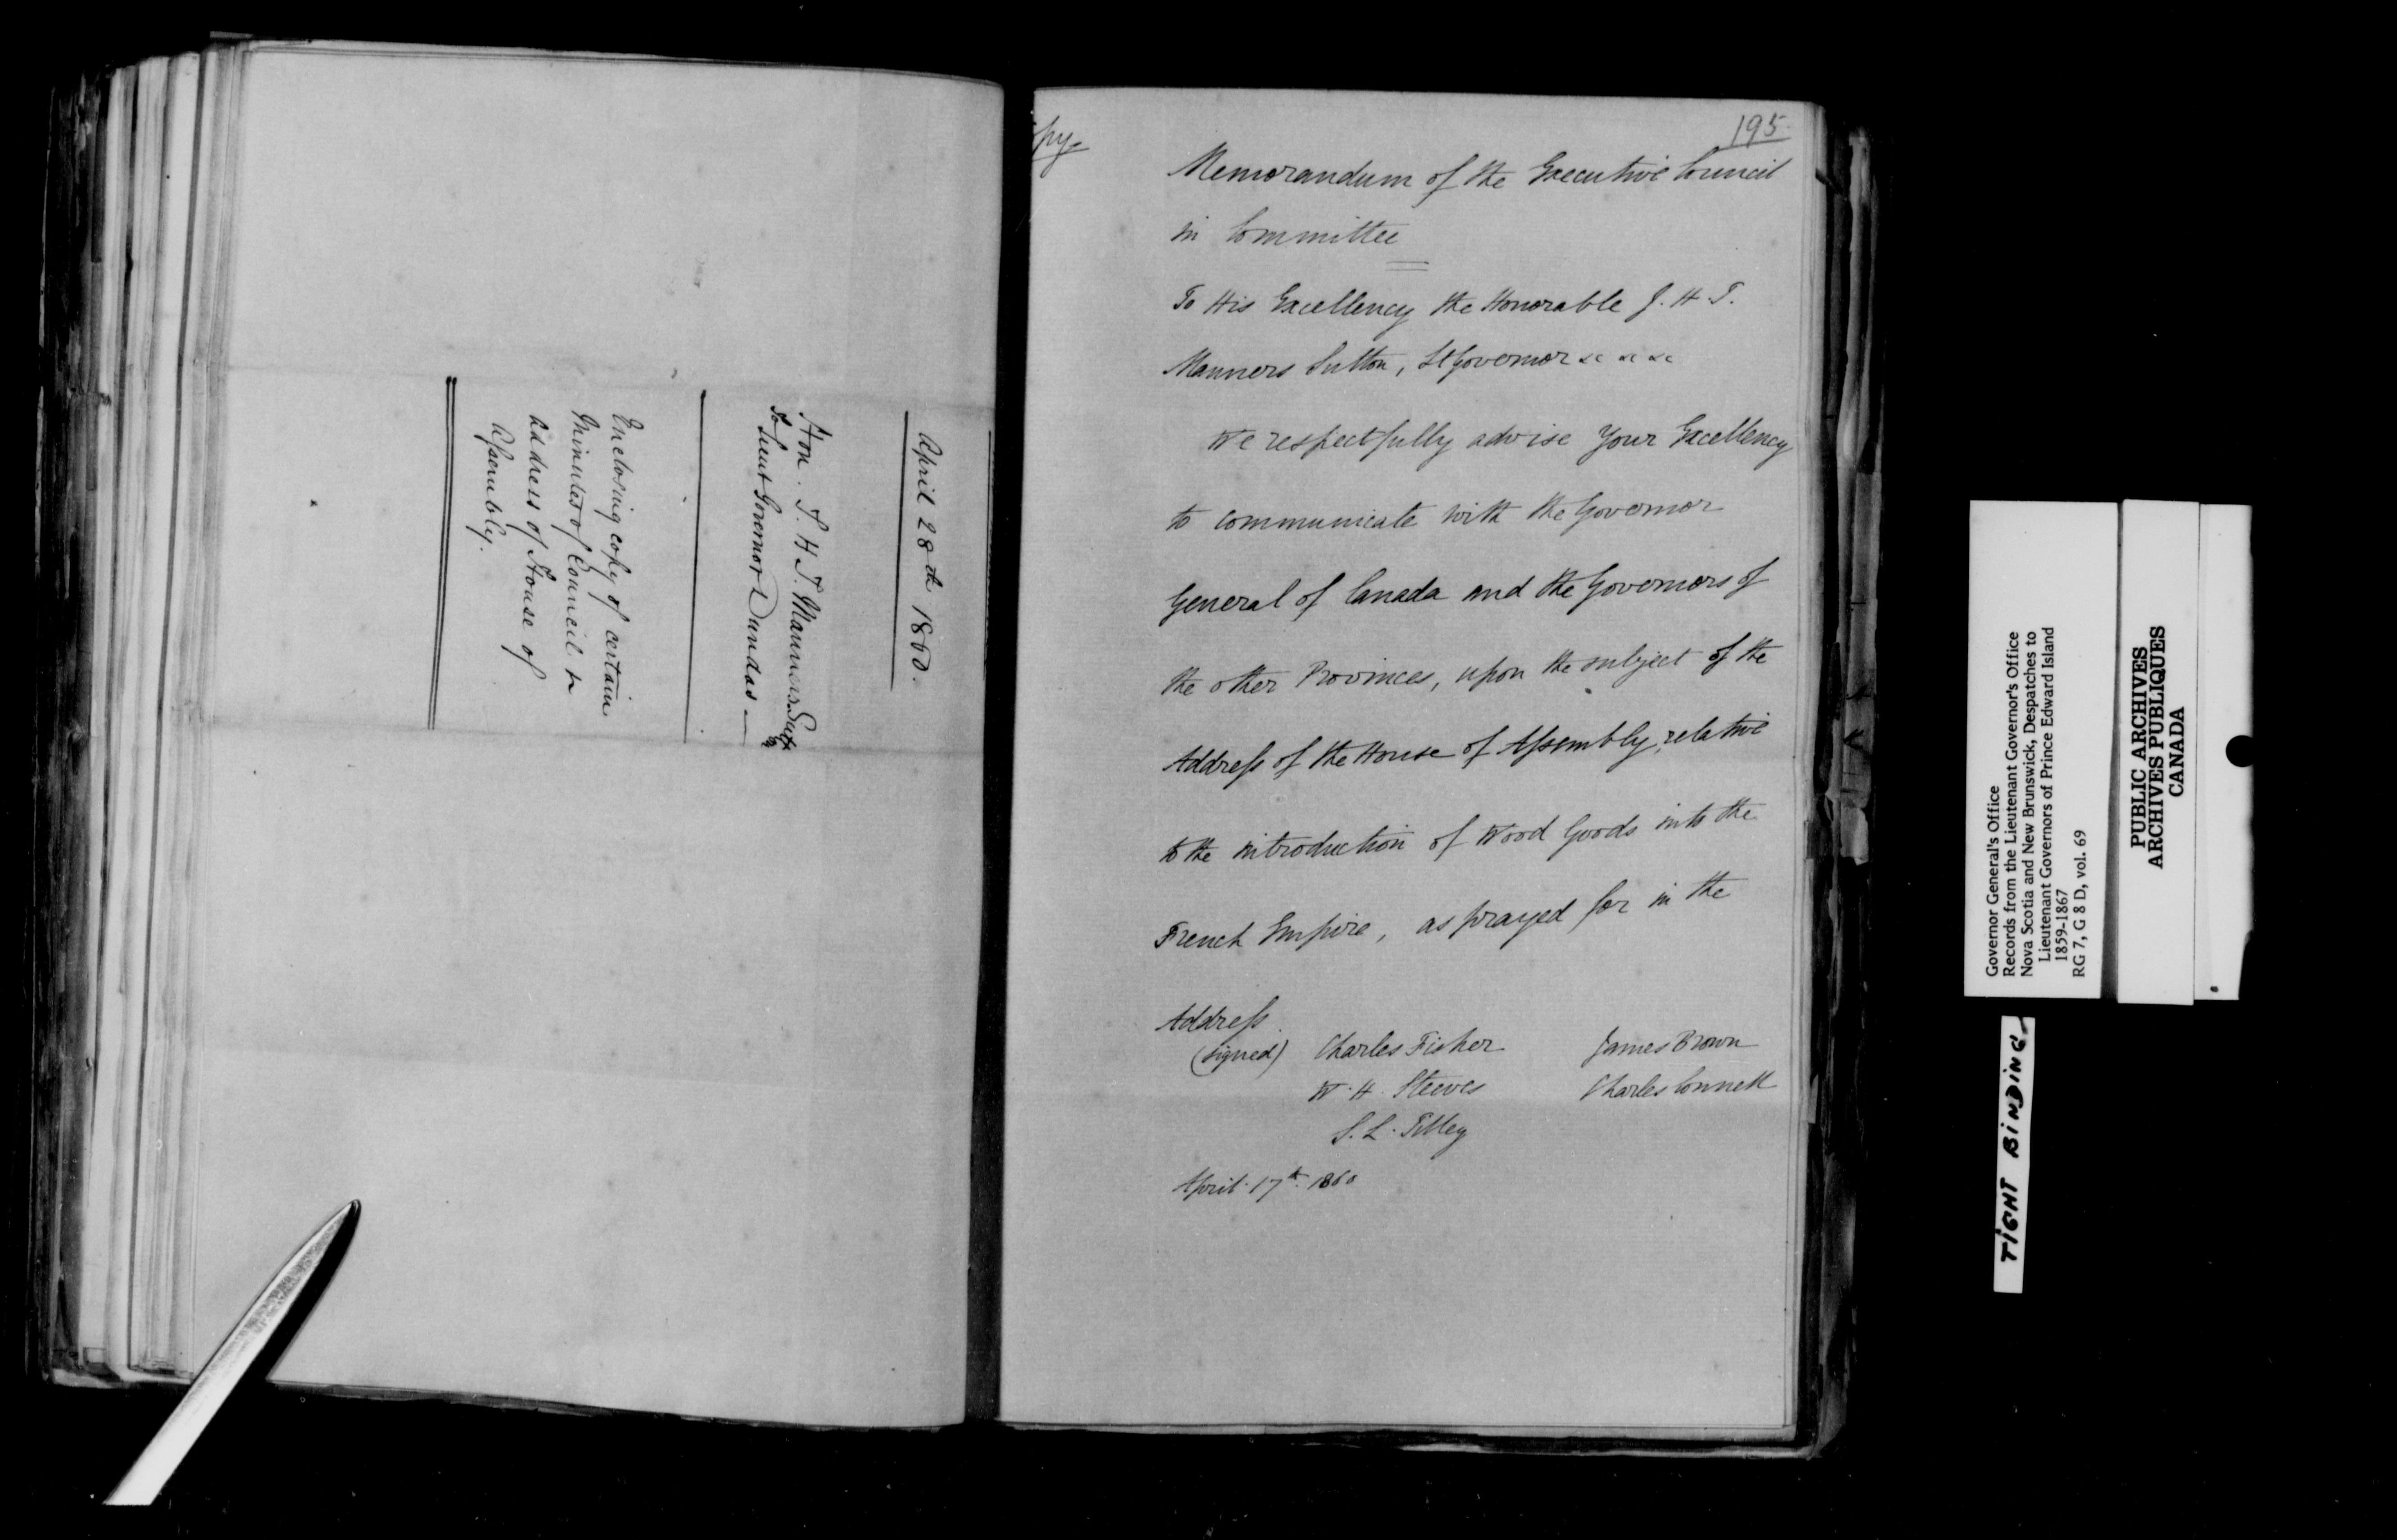 April 28th 1860.
Hon. J. H. T. Manners Sutton
To Lieut Governor Dundas —
Enclosing copy of certain
Minutes of Council &
address of House of
Assembly.
195.
opy.
Memorandum of the Executive Council
in Committee
To His Excellency the Honorable J. H. T.
Manners Sutton, Lt Governor &c &c &c
We respectfully advise Your Excellency
to communicate with the Governor
General of Canada and the Governors of
the other Provinces, upon the subject of the
Address of the House of Assembly, relative
to the introduction of Wood Goods into the
French Empire, as prayed for in the
Address.
(signed) Charles Fisher James Brown
W. H. Steeves Charles Connell
S. L. Tilley
April 17th 1860
Governor General's Office
Records from the Lieutenant Governor's Office
Nova Scotia and New Brunswick, Despatches to
Lieutenant Governors of Prince Edward Island
1859-1867
RG 7, G 8 D, vol. 69
PUBLIC ARCHIVES
ARCHIVES PUBLIQUES
CANADA
TIGHT BINDING